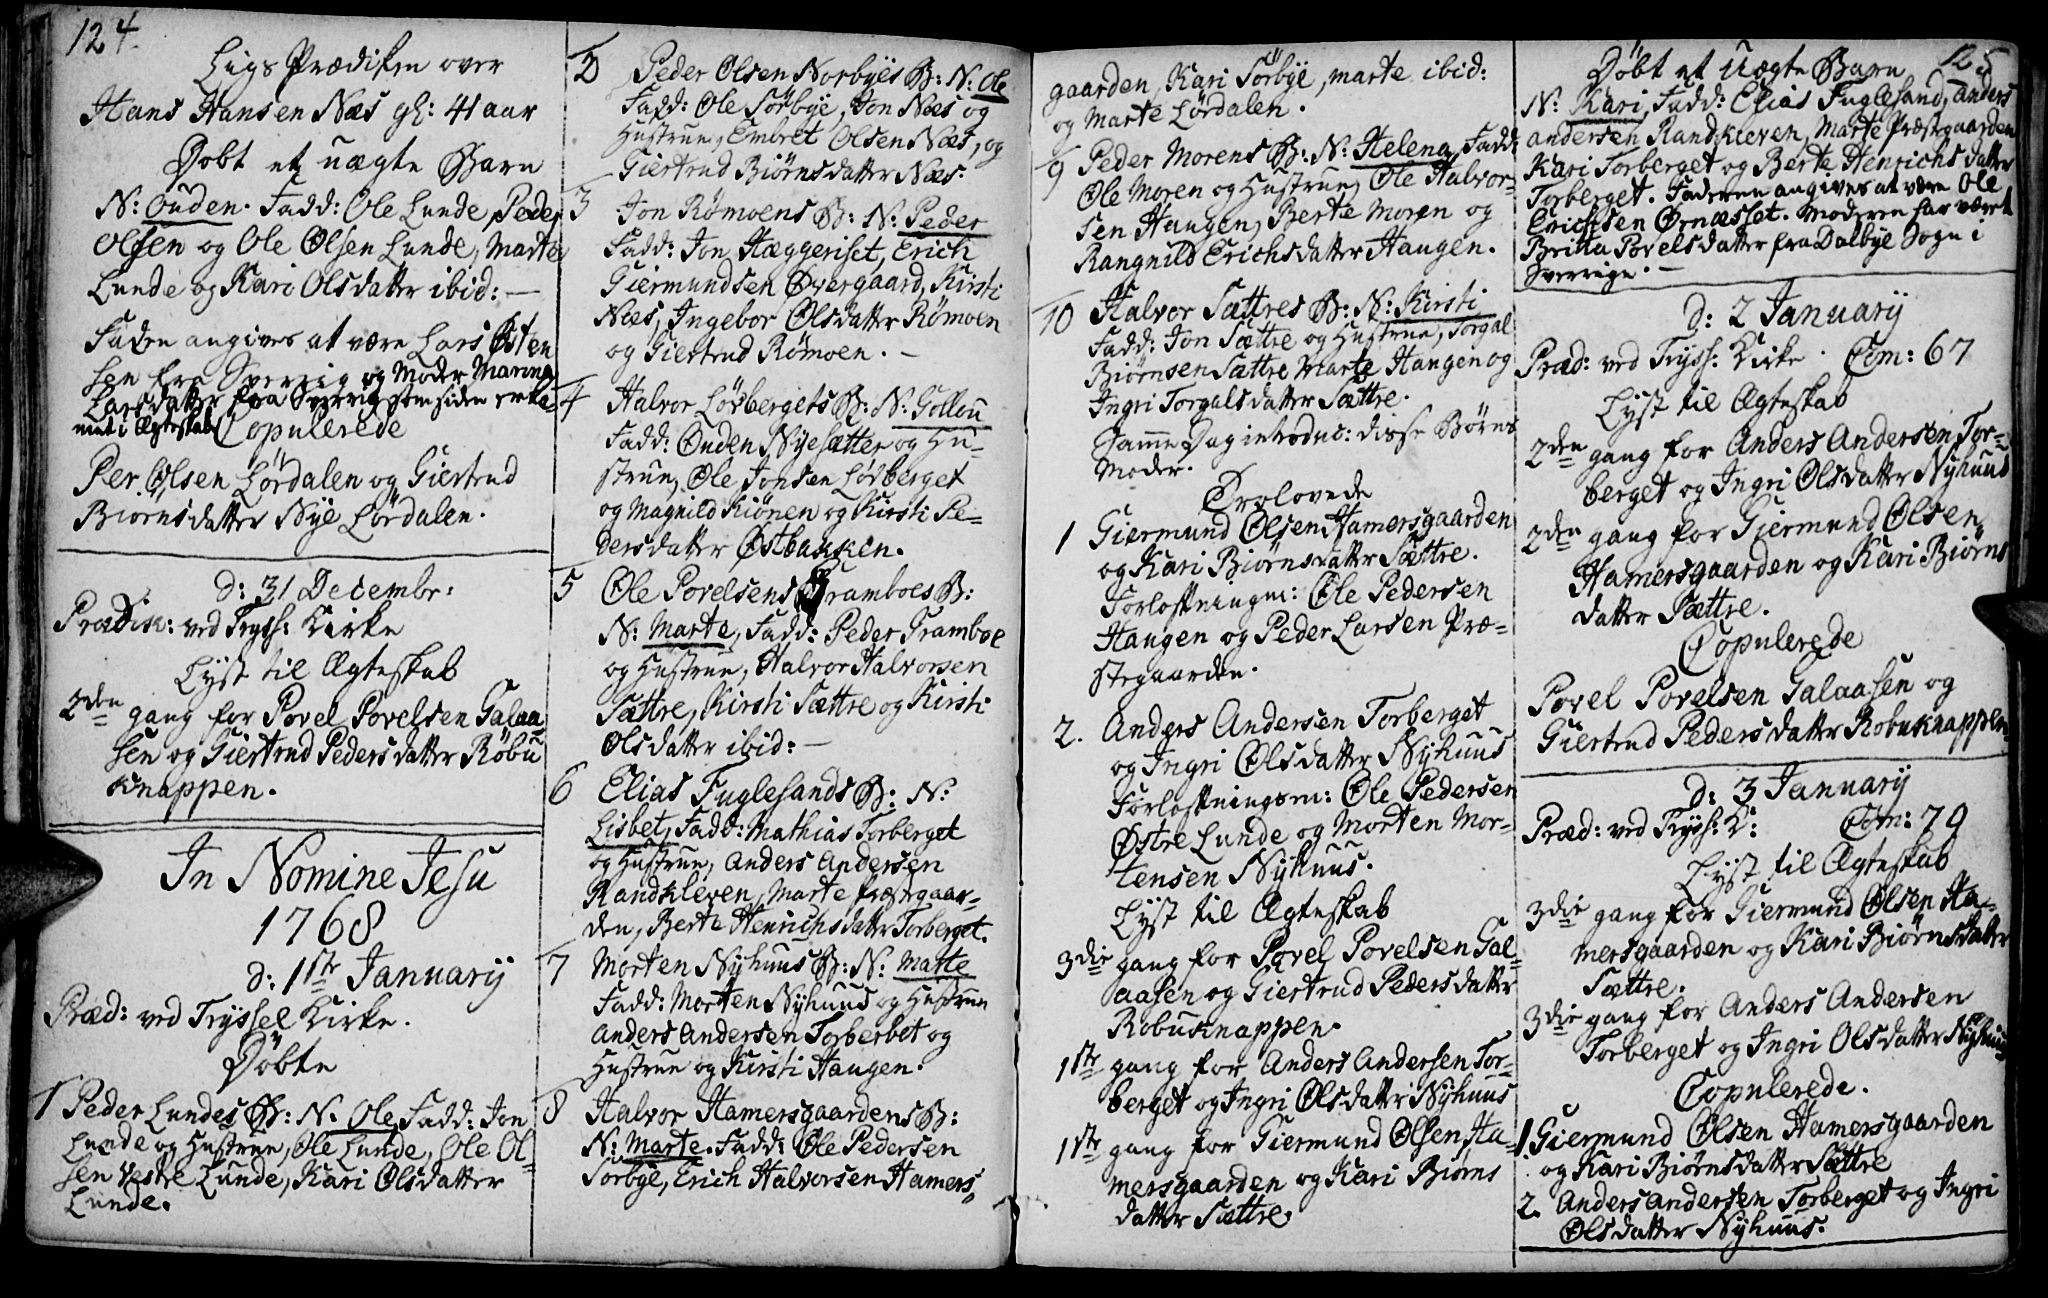 124.
Liigs Prædiken over
Hans Hansen Næs gl: 41 aar
Döbt et uægte Barn
N: Ouden. Fadd: Ole Lunde, Peder
Olsen og Ole Olsen Lunde, Marte
Lunde og Kari Olsdatter ibid: —
Faderen angives at være Lars Østen
sen fra Sverrig og Moder Marina
Larsdatter fra Sverrig som siden
Copulerede
Per Olsen Lördalen og Giertrud
Biörnsdatter Nye Lördalen.
d: 31 Decembr:
Prædik: ved Tryss: Kirke
Lyst til Ægteskab
2den gang for Povel Povelsen Galaa
sen og Giertrud Pedersdatter Röbu
knappen.
In Nomine Jesu
1768
d: 1ste Januarij
Præd: ved Tryssel Kirke.
Döbte
1 Peder Lundes B: N. Ole Fadd: Jon
Lunde og Hustrue, Ole Lunde, Ole Ol-
sen Vestre Lunde, Kari Olsdatter
Lunde.
2 Peder Olsen Norbyes B: N: Ole
Fadd: Ole Sörbye, Jon Næs og
Hustrue, Embret Olsen Næs, og
Giertrud Biörnsdatter Næs.
3 Jon Römoens B: N: Peder
Fadd: Jon Hæggeriset, Erich
Giermundsen Övergaard, Kirsti
Næs, Ingebor Olsdatter Römoen
og Giertrud Römoen. —
4 Halvor Lövbergets B: N: Gollou
Fadd: Ouden Nyesætter og Hu-
strue, Ole Jonsen Lövberget
og Magnild Kiönen og Kirsti Pe-
dersdatter Östbakken.
5 Ole Povelsens Gramboes B:
N: Marte, Fadd: Peder Gramboe
og Hustrue, Halvor Halvorsen
Sættre, Kirsti Sættre og Kirsti
Olsdatter ibid: —
6 Elias Fuglesands B: N:
Lisbet, Fadd: Mathias Torberget
og Hustrue, Anders Andersen
Randkleven, Marte Præstgaar-
den, Berte Henrichsdatter Torberget.
7 Morten Nyhuus B: N: Marte
Fadd: Morten Nyhuus og Hustrue
Anders Andersen Torberbet og
Hustrue og Kirsti Haugen.
8 Halvor Hamersgaardens B:
N: Marte. Fadd: Ole Pedersen
Sörbye, Erich Halvorsen Hamers-
gaarden, Kari Sörbye, Marte ibid:
og Marte Lördalen.
9 Peder Morens B: N: Helena, Fadd:
Ole Moren og Hustrue, Ole Halvor-
sen Haugen, Berte Moren og
Rangnild Erichsdatter Haugen.
10 Halvor Sættres B: N: Kirsti
Fadd: Jon Sættre og Hustrue, Torgal
Biörnsen Sættre Marte Haugen og
Ingri Torgalsdatter Sættre.
Samme Dag introduc: disse Börns
Moder.
Trolovede
1 Giermund Olsen Hamersgaarden
og Kari Biörnsdatter Sættre.
Forloftningsm: Ole Pedersen
Haugen og Peder Larsen Præ-
stegaarden.
2. Anders Andersen Torberget
og Ingri Olsdatter Nyhuus
Forloftningsm: Ole Pedersen
Östre Lunde og Morten Mor-
tensen Nyhuus.
Lyst til Ægteskab
3die gang for Povel Povelsen Gal-
aasen og Giertrud Pedersdatter
Robuknappen.
1ste gang for Anders Andersen Tor-
berget og Ingri Olsdatter Nyhuus
1ste gang for Giermund Olsen Ha-
mersgaarden og Kari Biörns
datter Sættre.
125
Döbt et uægte Barn
N: Kari, Fadd: Elias Fuglesand, Anders
Andersen Randkleven, Marte Præstgaarden
Kari Torberget og Berte Henrichsdatter
Torberget. Faderen angives at være Ole
Erichsen Örnæsset. Moderen har været
Britta Povelsdatter fra Dalbye Sogn i
Sverrige. —
d: 2 Januarij
Præd: ved Tryss: Kirke. Com: 67
Lyst til Ægteskab
2den gang for Anders Andersen Tor-
berget og Ingri Olsdatter Nyhuus
2den gang for Giermund Olsen
Hamersgaarden og Kari Biörns
datter Sættre.
Copulerede
Povel Povelsen Galaasen og
Giertrud Pedersdatter Robuknappen
d: 3 Januarij
Præd: ved Tryss: K: Com: 79
Lyst til Ægteskab
3die gang for Giermund Olsen Ha-
mersgaarden og Kari Biörnsdatter
Sættre.
3die gang for Anders Andersen
Torberget og Ingri Olsdatter Nyhuus
Copulerede.
1. Giermund Olsen Hamersgaarden
og Kari Biörnsdatter Sættre
2. Anders Andersen Torberget og Ingri
Olsdatter Nyhuus.